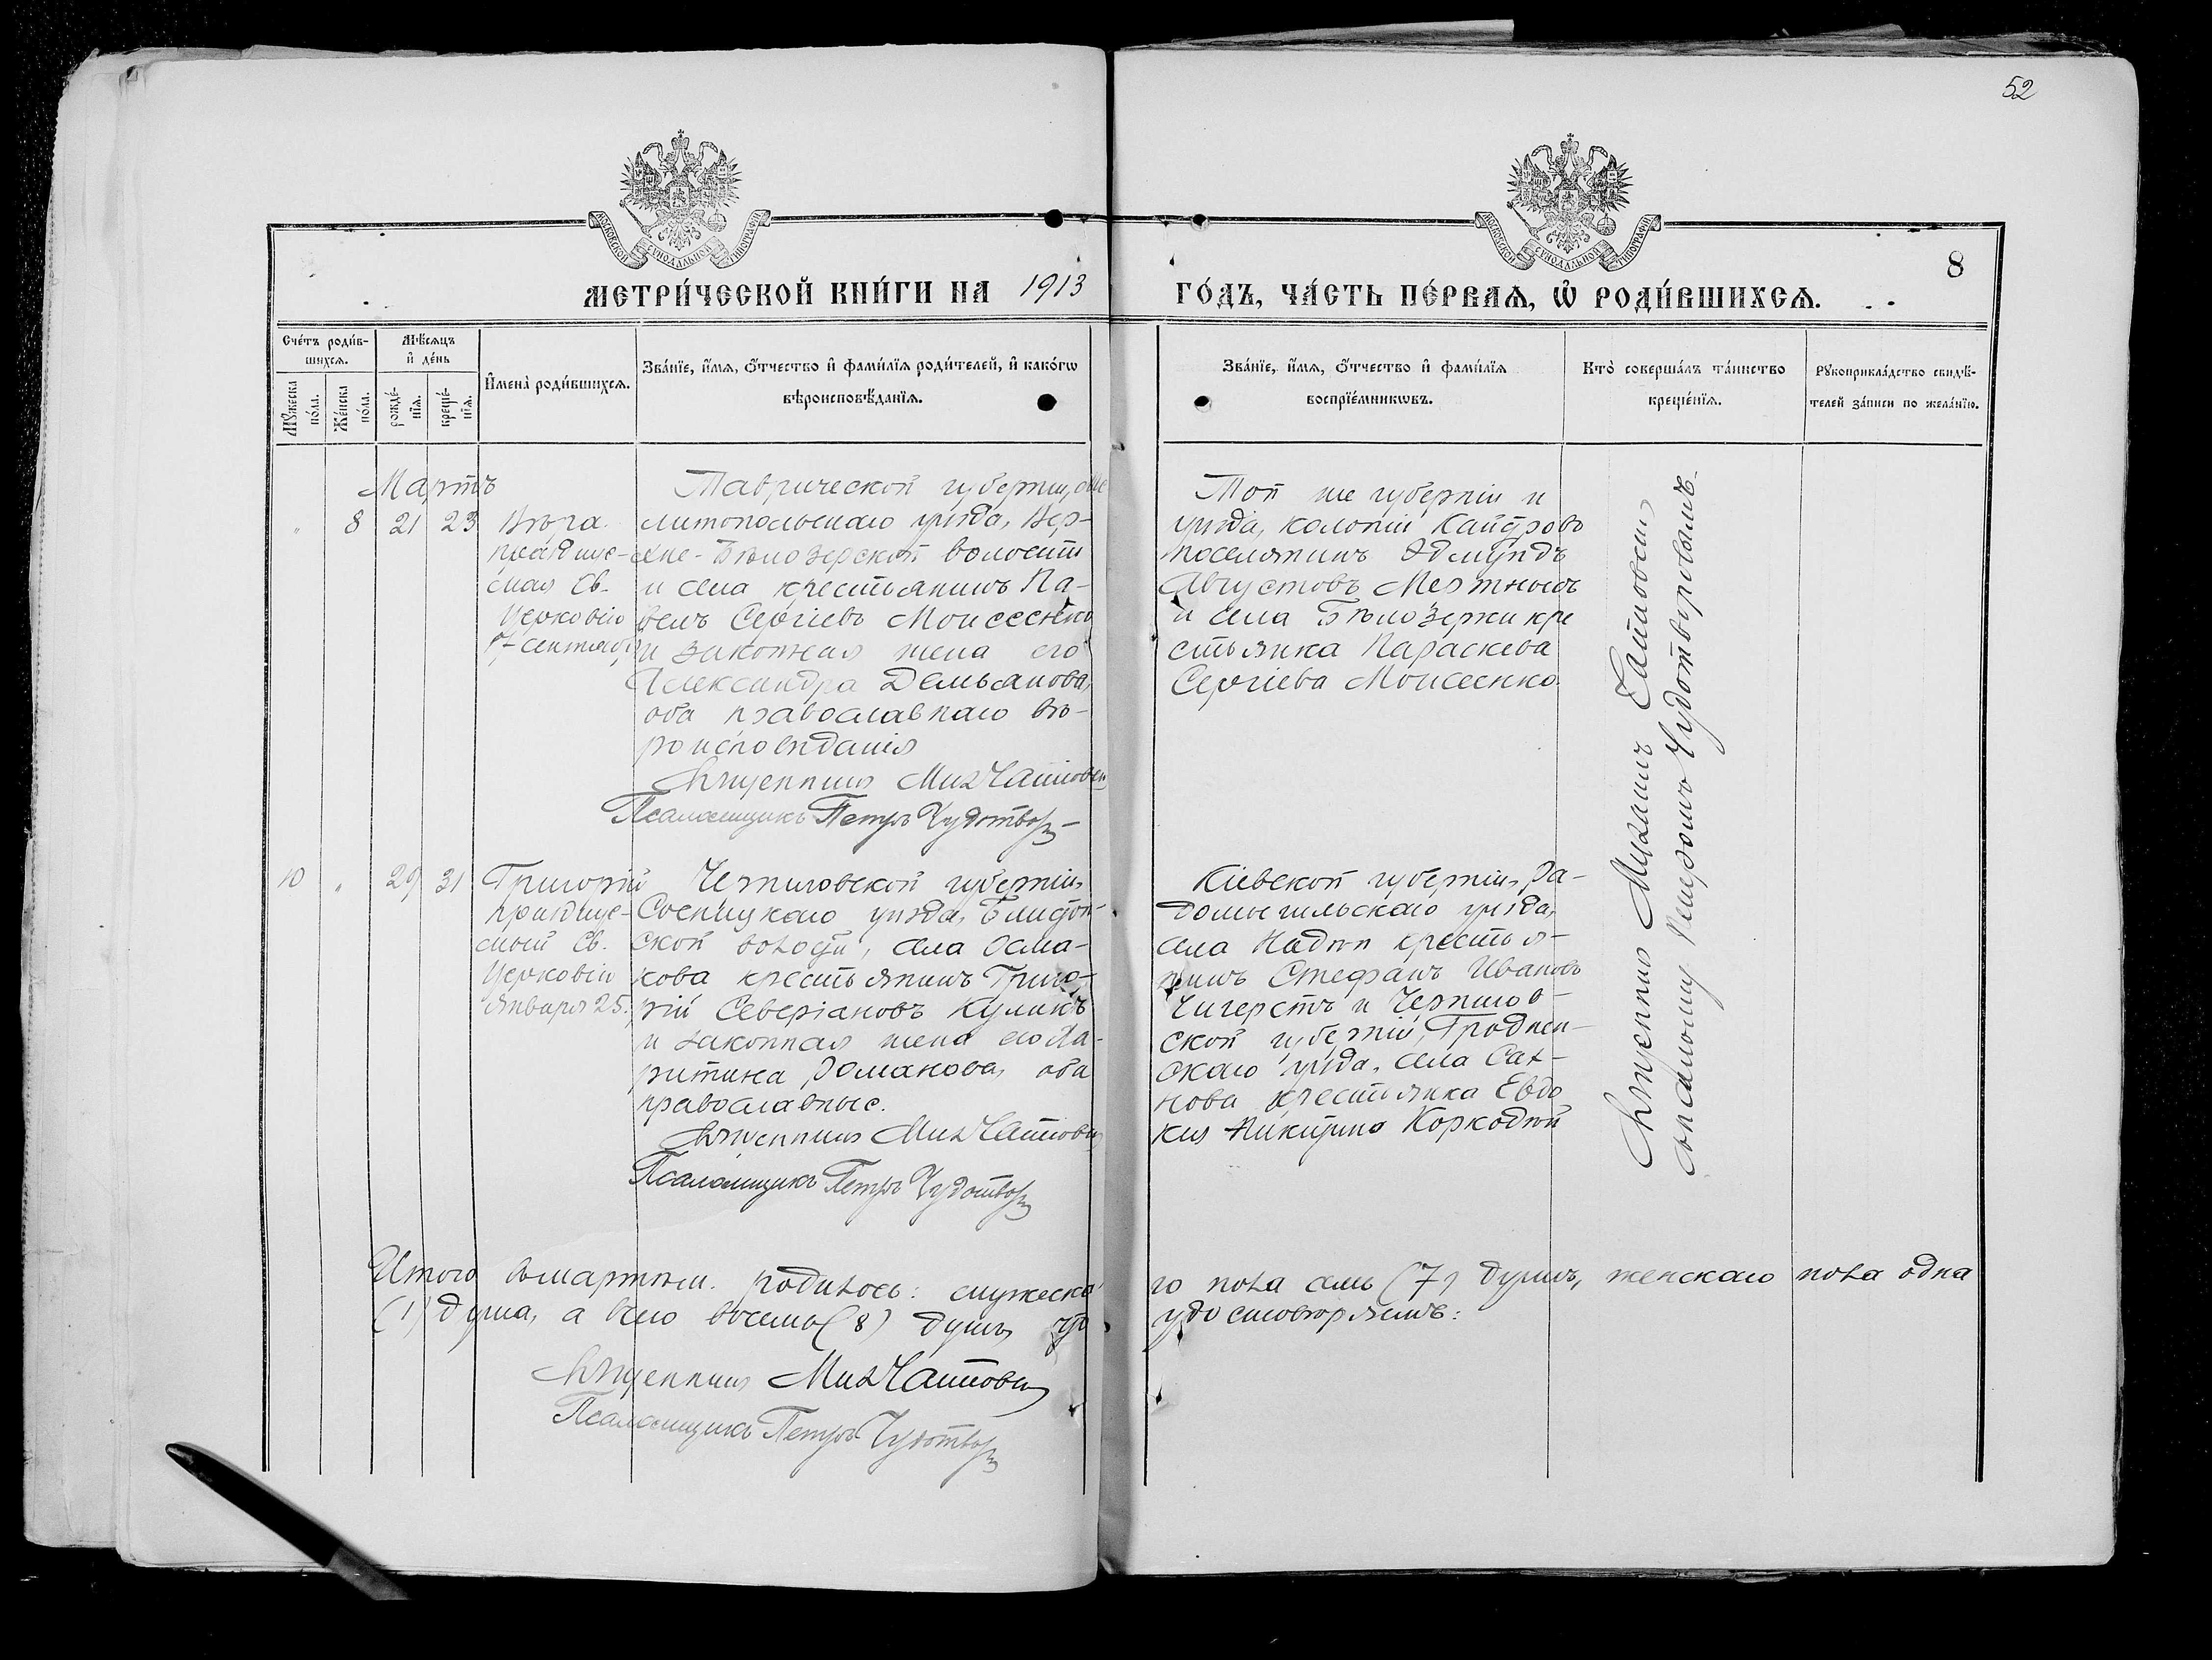 52
МОСКОВСКОЙ СѴНОДАЛЬНОЙ ТИПОГРАФІИ
МОСКОВСКОЙ СѴНОДАЛЬНОЙ ТИПОГРАФІИ
8
МЕТРИ́ЧЕСКОЙ КНИ́ГИ НА 1913
ГО́ДЪ, ЧА́СТЬ ПЕ́РВАѦ, Ѡ҆ РОДИ́ВШИХСѦ.
Сче́тъ роди́в-
шихсѧ.
Мꙋ́жеска по́ла.
Же́нска по́ла.
Мѣ́сѧцъ
и҆ де́нь
рожде́-
нїѧ.
креще́-
нїѧ.
И҆мена̀ роди́вшихсѧ.
Зва́нїе, и҆́мѧ, ѻ҆́тчество и҆ фами́лїѧ роди́телей, и҆ како́гѡ
вѣроисповѣ́данїѧ.
Зва́нїе, и҆́мѧ, ѻ҆́тчество и҆ фами́лїѧ
воспрїе́мникѡвъ.
Кто̀ соверша́лъ та́инство
креще́нїѧ.
Рꙋкоприкла́дство свидѣ́-
телей за́писи по жела́нїю.
Мартъ
" 8 21 23
Вѣра.
празднуе-
мая Св.
Церковію
17 сентяб.
Таврической губерніи, Ме
литопольскаго уѣзда, Вер-
хне-Бѣлозерской волости
и села крестьянинъ Па-
велъ Сергіевъ Моисеенко
и законная жена его
Александра Демьянова,
оба православнаго вѣ-
роисповѣданія
Священникъ Мих Чайковскі
Псаломщикъ Петръ Чудотвор
Той же губерніи и
уѣзда, колоніи
поселянинъ Эдмундъ
Августовъ
и села Бѣлозерки кре
стьянка Параскева
Сергіева Моисеенко.
Священникъ Михаилъ
съ псаломщ. Петромъ Чудотворовымъ.
10 " 29 31
Григорій
празднуе-
мый Св.
Церковію
Января 25.
Черниговской губерніи,
Сосницкаго уѣзда,
ской волости, села Осма-
кова крестьянинъ Григо-
рій Северіановъ Куликъ
и законная жена его Ха-
ритина Романова, оба
православные.
Священникъ Мих Чайковскі
Псаломщикъ Петръ Чудотвор
Кіевской губерніи, Ра-
домысльскаго уѣзда,
села крестья-
нинъ Стефанъ Ивановъ
и Чернигов-
ской губерніи, Гроднен-
скаго уѣзда, села Сах-
нова крестьянка Евдо
кия Никитина
Итого въ мартѣ м. родилось: мужеска
го пола семь (7) душъ, женскаго пола одна
(1) душа, а всего восемь (8) душъ, что
удостовѣряемъ:
Священникъ Мих Чайковскі
Псаломщикъ Петръ Чудотвор